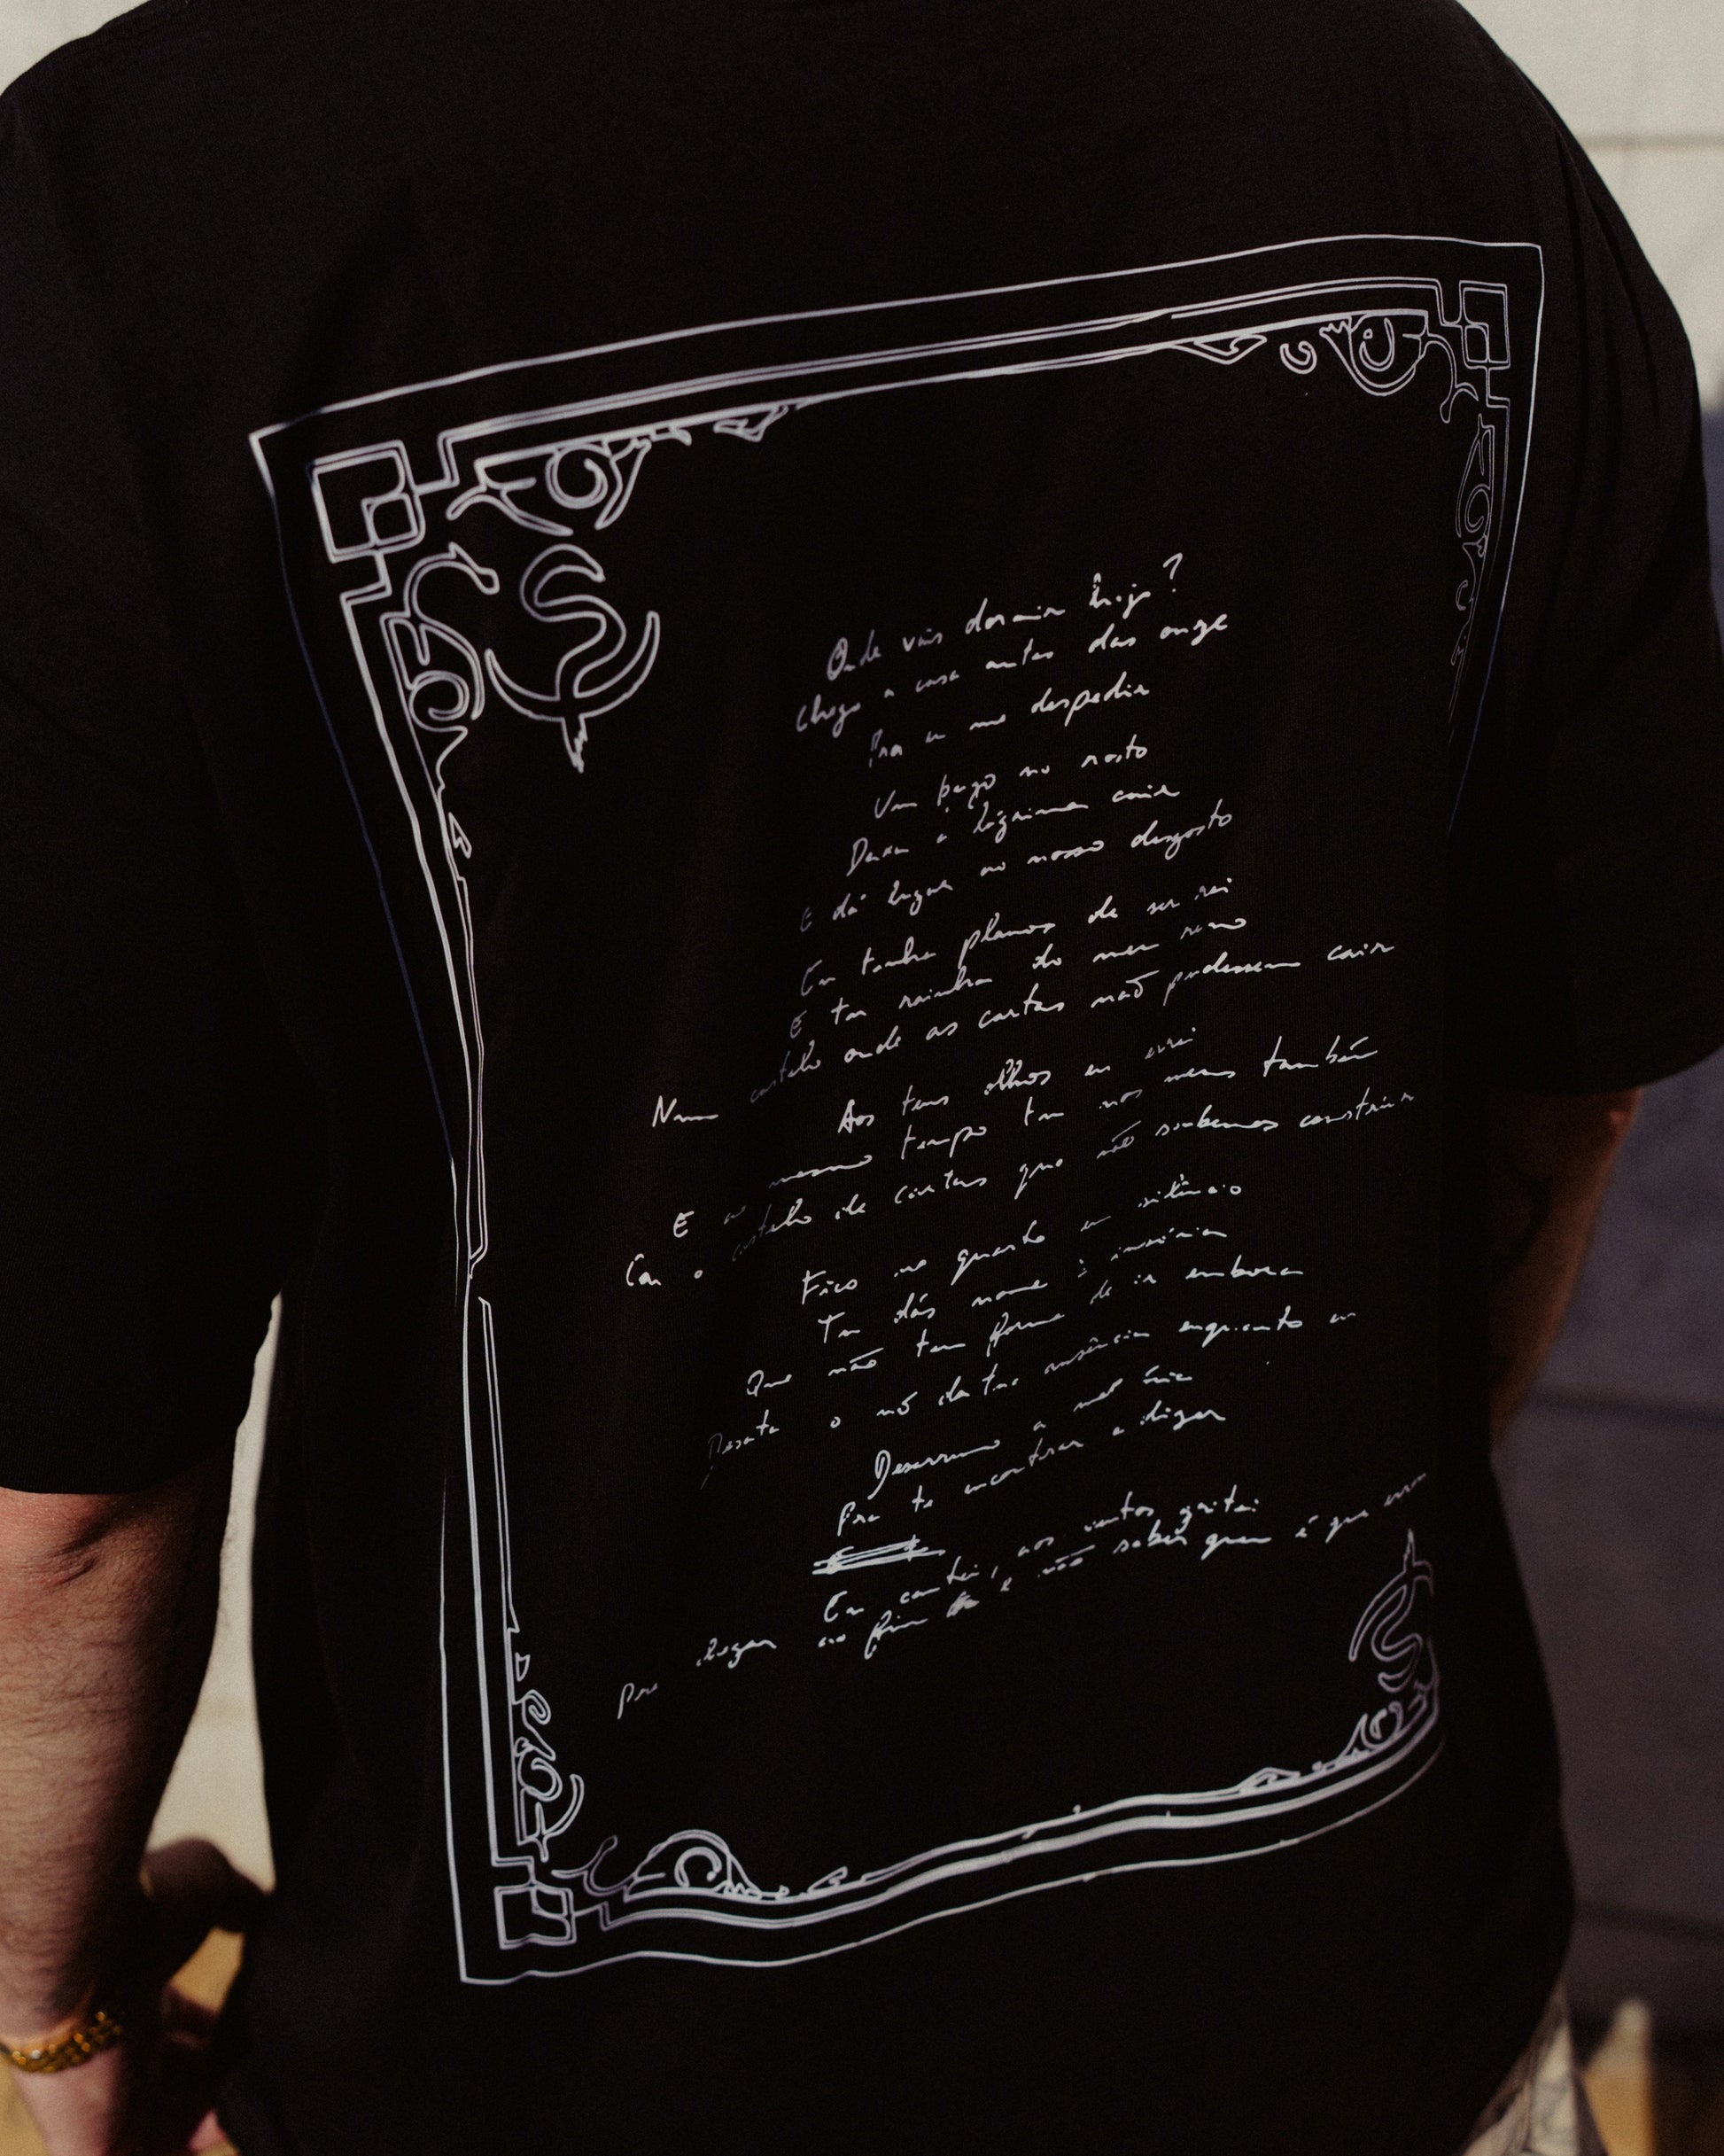 Onde vais dormir hoje?
chega a casa antes das onze
Pra eu me despedir
Um beijo no rosto
Deixa a lágrima cair
E dá lugar ao nosso desgosto
Eu tinha planos de ser rei
E tu rainha do meu reino
Num castelo onde as cartas não pudessem cair
Aos teus olhos eu errei
E ao mesmo tempo tu nos meus também
Com o castelo de cartas que não soubemos construir
Fico no quarto em silêncio
Tu dás nome à insónia
Que não tem forma de ir embora
Desata o nó da tua ausência enquanto eu
Desarrumo a
Pra te encontrar a dizer
Eu cantei, aos ventos gritei
Pra chegar ao fim e não saber quem é que errou